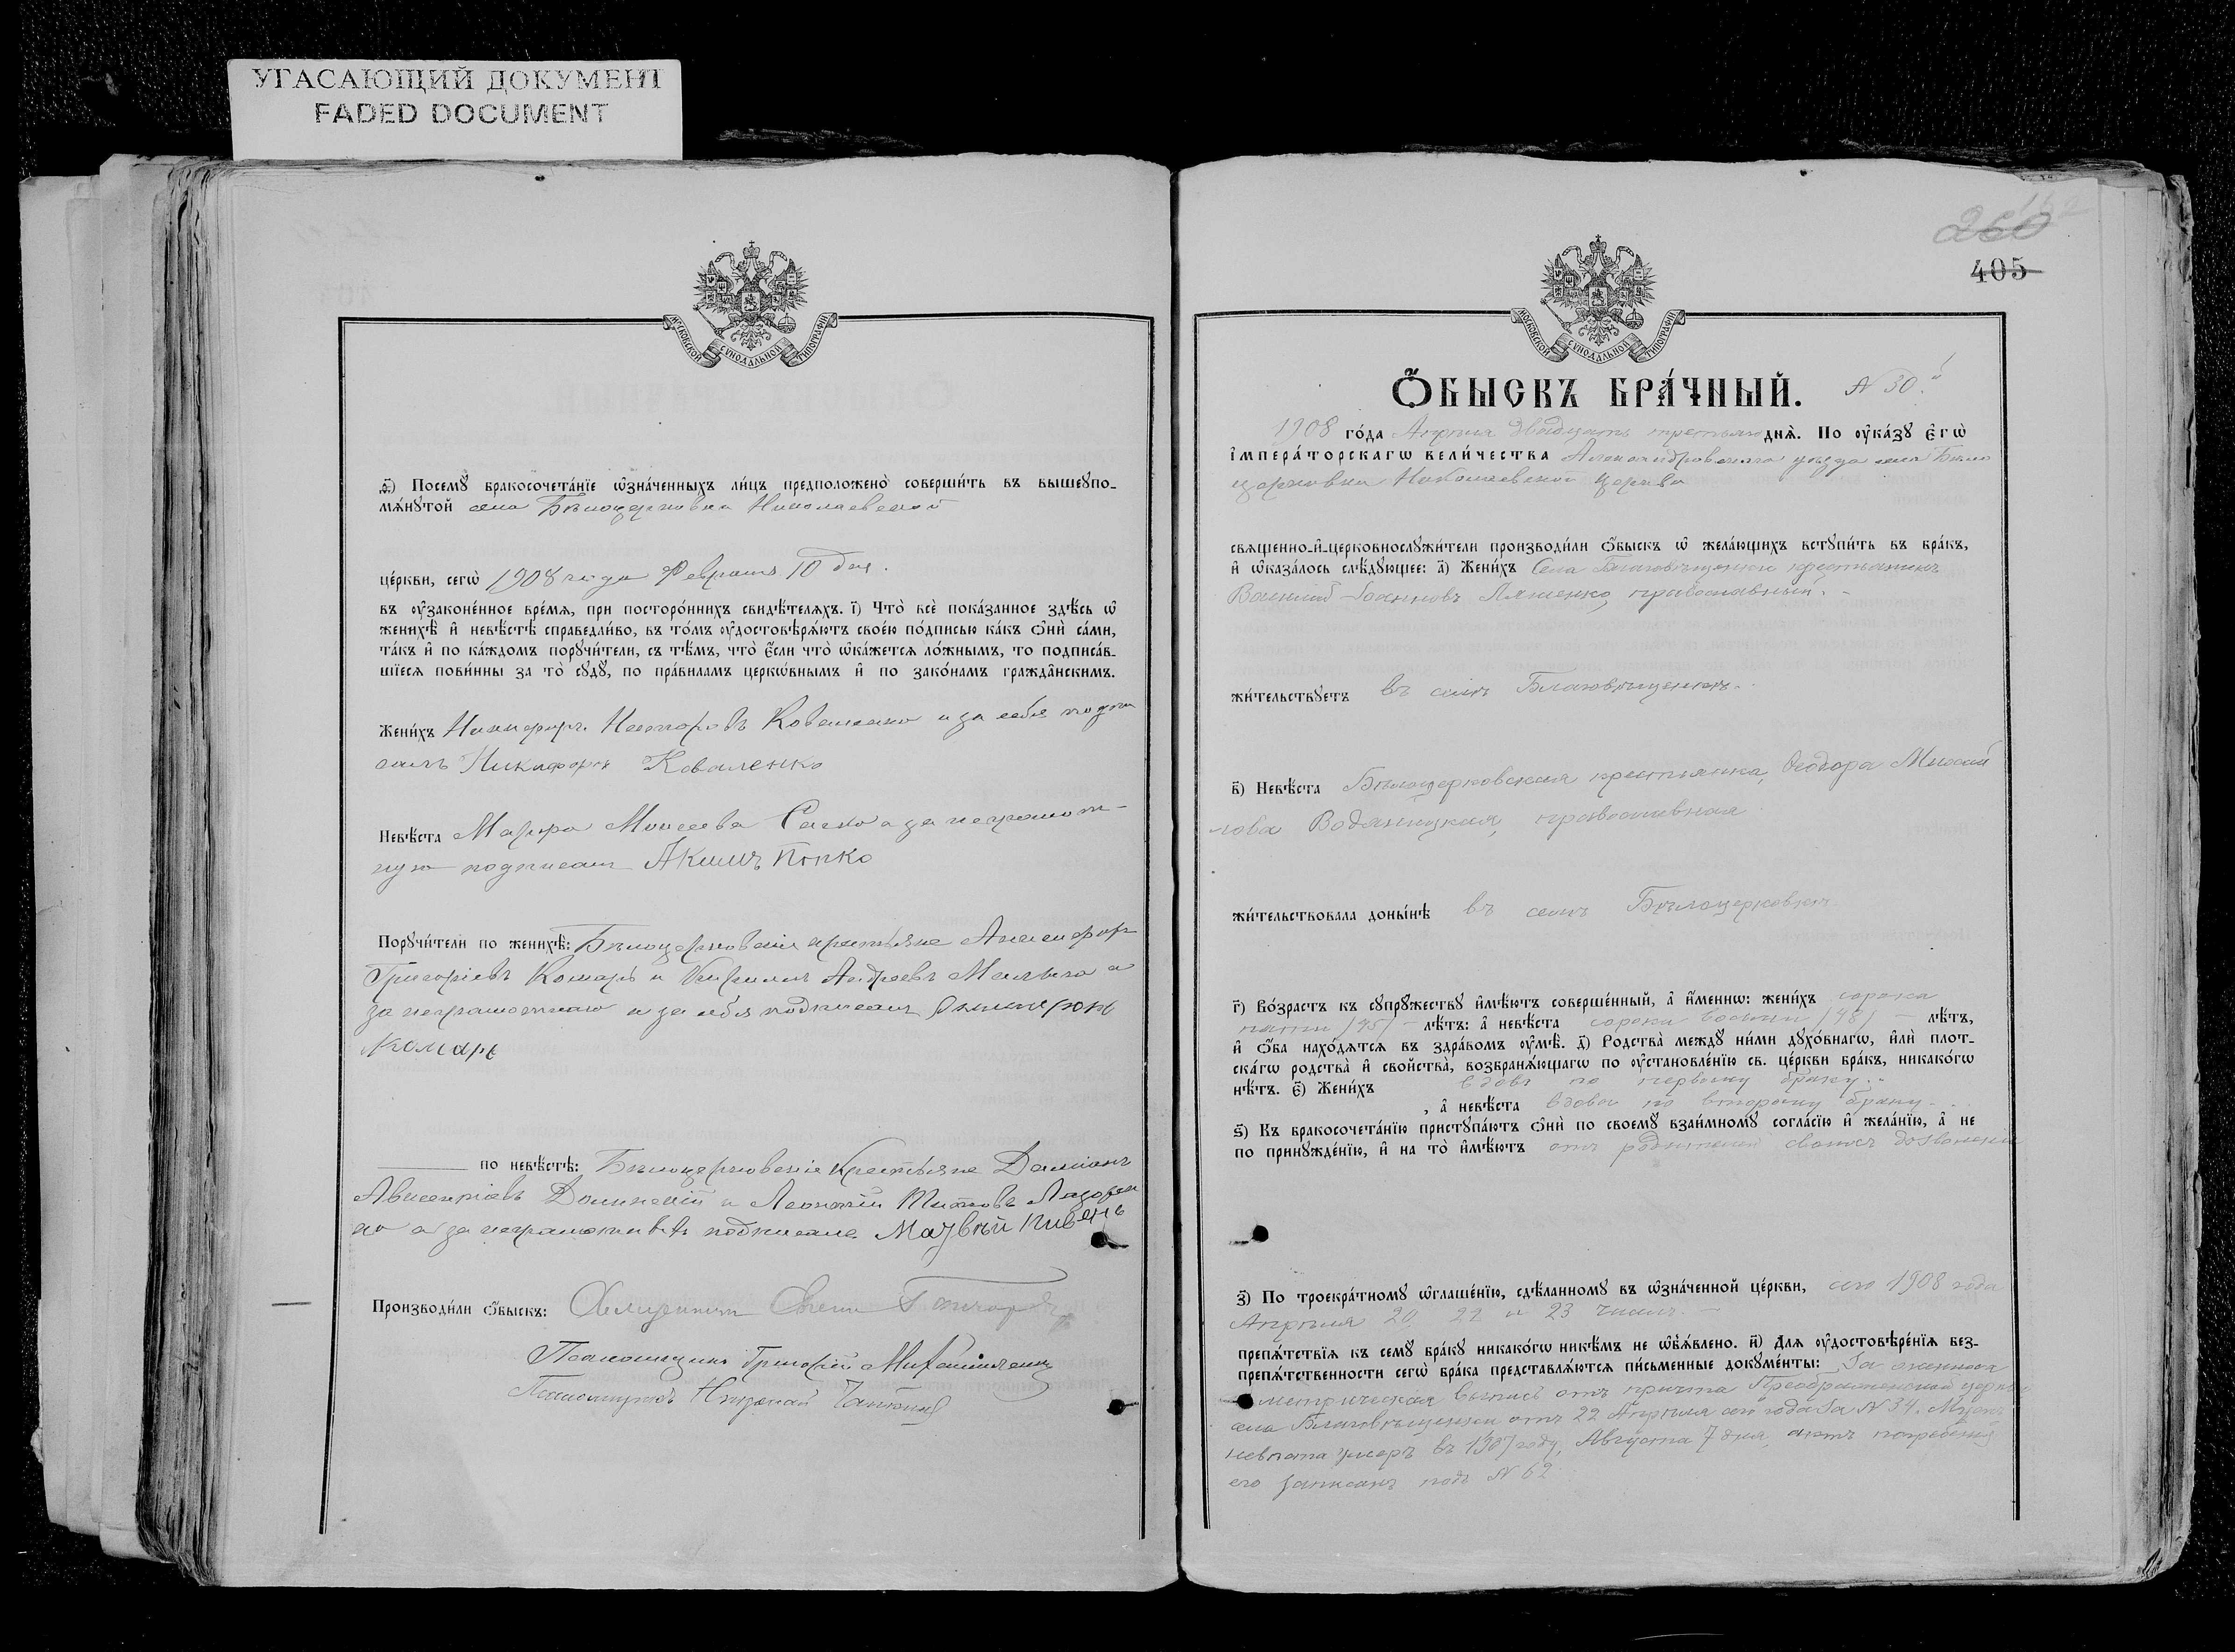 УГАСАЮЩИЙ ДОКУМЕНТ
FADED DOCUMENT
МОСКОВСКОЙ СѴНОДАЛЬНОЙ ТИПОГРАФІИ
ѳ҃) Посемꙋ̀ бракосочета́нїе ѡ҆зна́ченныхъ ли́цъ предположено̀ соверши́ть въ вышеꙋпо-
мѧ́нꙋтой села Бѣлоцерковки Николаевской
це́ркви, сегѡ̀ 1908 года Февраля 10 дня.
въ ᲂу҆законе́нное вре́мѧ, при посторо́ннихъ свидѣ́телѧхъ. і҃) Что̀ всѐ пока́занное здѣ́сь ѡ҆
женихѣ̀ и҆ невѣ́стѣ справедли́во, въ то́мъ ᲂу҆достовѣрѧ́ютъ свое́ю по́дписью ка́къ ѻ҆нѝ са́ми,
та́къ и҆ по ка́ждомъ порꙋчи́тели, съ тѣ́мъ, что̀ є҆́сли что̀ ѡ҆ка́жетсѧ ло́жнымъ, то подписа́в-
шїесѧ пови́нны за то̀ сꙋдꙋ̀, по пра́виламъ церкѡ́внымъ и҆ по зако́намъ гражда̑нскимъ.
Жени́хъ Никифоръ Несторовъ Коваленко и за себя подпи
салъ Никифоръ Коваленко
Невѣ́ста Марфа Моисеева Сасько а за неграмот-
ную подписалъ Акимъ Попко
Порꙋчи́тели по женихѣ̀: Бѣлоцерковскіе крестьяне Аксенфор
Григоріевъ Комаръ и Кириллъ Андреевъ Малыха а
за неграмотнаго и за себя подписалъ
Комарь
по невѣ́стѣ: Бѣлоцерковскіе крестьяне Даміанъ
Авксентіевъ Долинскій и Леонтій Титовъ Лазорен
ко а за неграмотныхъ подписалъ Матвѣй Пивень
Производи́ли ѻ҆́быскъ: Священникъ Гончаровъ
Псаломщикъ Григорій
Псаломщикъ
260
405
МОСКОВСКОЙ СѴНОДАЛЬНОЙ ТИПОГРАФІИ
Ѻ҆́БЫСКЪ БРА́ЧНЫЙ. N 30.й
1908 го́да Апрѣля двадцать третьяго днѧ̀. По ᲂу҆ка́зꙋ Є҆гѡ̀
І҆мпера́торскагѡ вели́чества Александровскаго уѣзда села Бѣло
церковки Николаевской церкви
свѧще́нно-и҆-церковнослꙋжи́тели производи́ли ѻ҆́быскъ ѡ҆ жела́ющихъ встꙋпи́ть въ бра́къ,
и҆ ѡ҆каза́лось слѣ́дꙋющее: а҃) Жени́хъ Села Благовѣщенки крестьянинъ
Василій Іоанновъ Ляшенко, православный.
жи́тельствꙋетъ въ селѣ Благовѣщенкѣ.
в҃) Невѣ́ста Бѣлоцерковская крестьянка, Ѳеодора Михай
лова Водяницкая, православная
жи́тельствовала доны́нѣ въ селѣ Бѣлоцерковкѣ
г҃) Во́зрастъ къ сꙋпрꙋ́жествꙋ и҆мѣ́ютъ соверше́нный, а҆ и҆́меннѡ: жени́хъ сорока
пяти (45) лѣ́тъ: а҆ невѣ́ста сорока восьми (48) лѣ́тъ,
и҆ ѻ҆́ба нахо́дѧтсѧ въ здра́вомъ ᲂу҆мѣ̀. д҃) Родства̀ междꙋ̀ ни́ми дꙋхо́внагѡ, и҆лѝ плот-
ска́гѡ родства̀ и҆ свойства̀, возбранѧ́ющагѡ по ᲂу҆становле́нїю св. це́ркви бра́къ, никако́гѡ
нѣ́тъ. є҃) Жени́хъ вдовъ по первому браку
, а҆ невѣ́ста вдова по второму браку
ѕ҃) Къ бракосочета́нїю пристꙋпа́ютъ ѻ҆нѝ по своемꙋ̀ взаи́мномꙋ согла́сїю и҆ жела́нїю, а҆ не
по принꙋжде́нїю, и҆ на то̀ и҆мѣ́ютъ отъ родителей своихъ дозволеніе
з҃) По троекра́тномꙋ ѡ҆глаше́нїю, сдѣ́ланномꙋ въ ѡ҆зна́ченной це́ркви, сего 1908 года
Апрѣля 20, 22 и 23 чиселъ.
препѧ́тствїѧ къ семꙋ̀ бра́кꙋ никако́гѡ никѣ́мъ не ѡ҆б̾ѧ́влено. и҃) Длѧ ᲂу҆достовѣре́нїѧ без-
препѧ́тственности сегѡ̀ бра́ка представлѧ́ютсѧ пи́сьменные докꙋме́нты: За жениха
метрическая выпись отъ причта Преображенской церкви
села Благовѣщенки отъ 22 Апрѣля сего года за N 34. Мужъ
невѣста умеръ въ 1907 году, Августа 7 дня, актъ погребенія
его записанъ подъ N 62